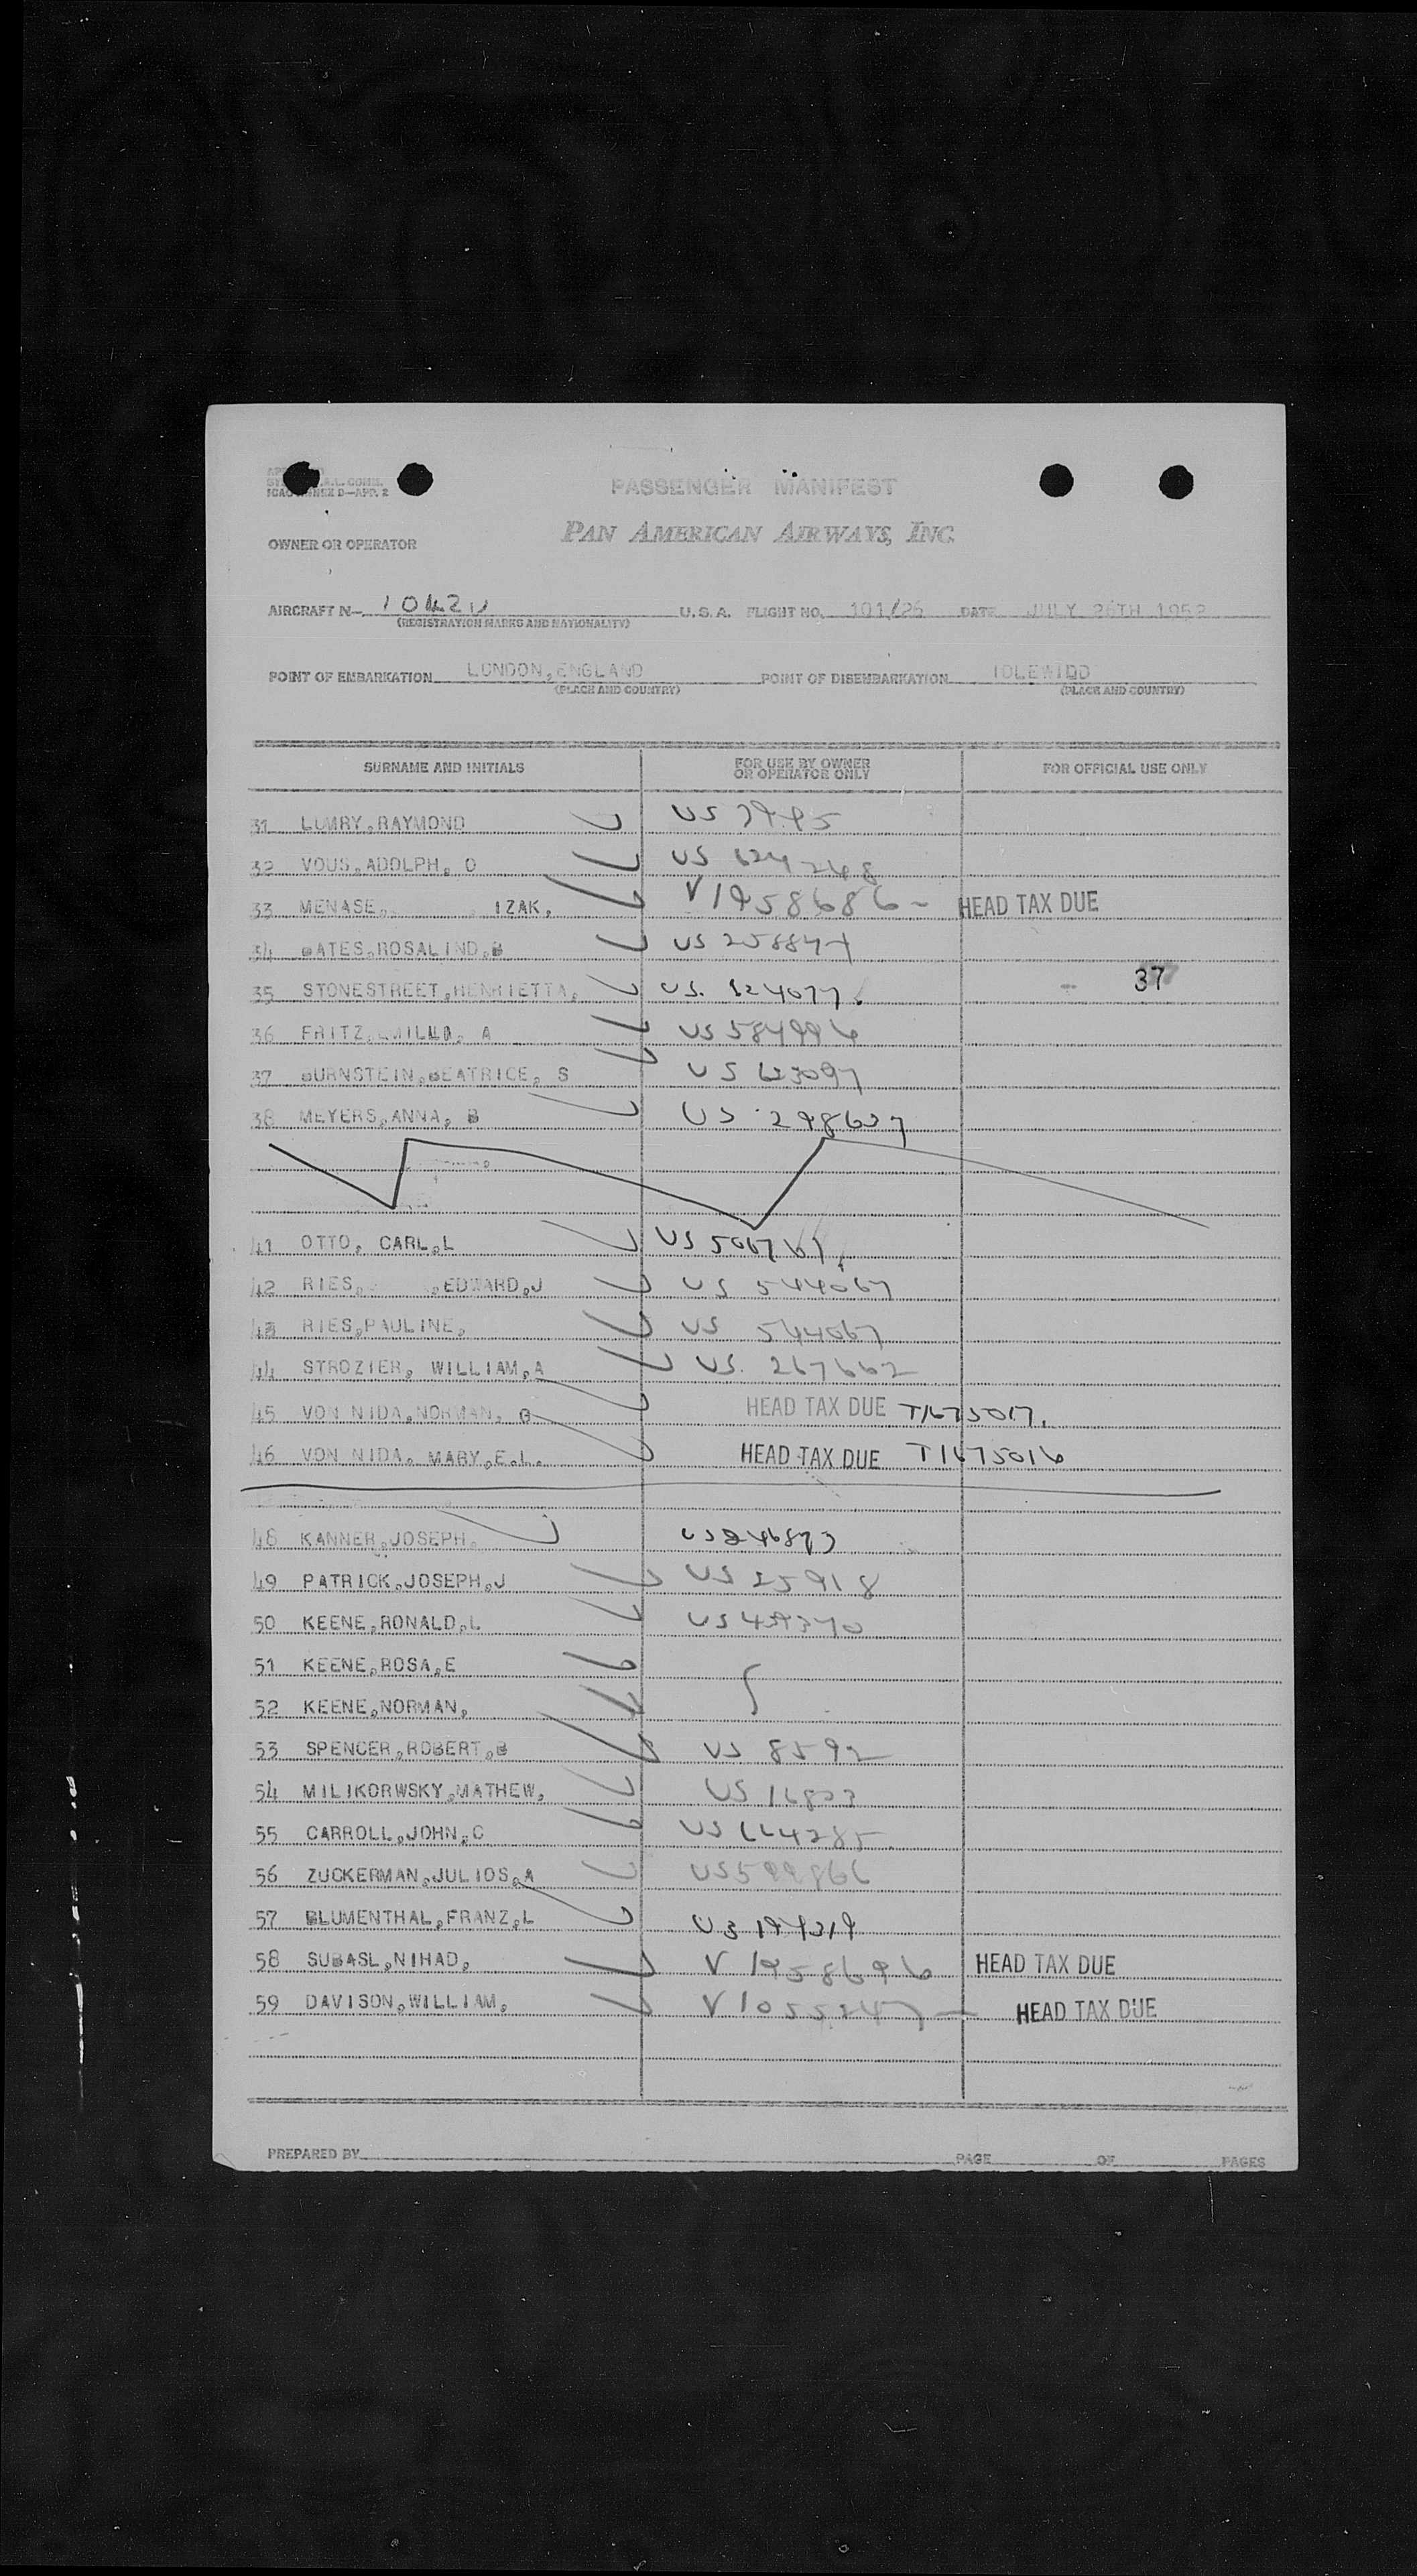 PASSENGER MANIFEST
ICAO ANNEX 9—APP. 2
PAN AMERICAN AIRWAYS, INC.
OWNER OR OPERATOR
AIRCRAFT N— U.S.A. FLIGHT NO. 101/26 DATE JULY 26TH 1952
(REGISTRATION MARKS AND NATIONALITY)
POINT OF EMBARKATION LONDON, ENGLAND POINT OF DISEMBARKATION IDLEWIDD
(PLACE AND COUNTRY) (PLACE AND COUNTRY)
SURNAME AND INITIALS FOR USE BY OWNER OR OPERATOR ONLY FOR OFFICIAL USE ONLY
31 LUMRY,RAYMOND US
32 VOUS,ADOLPH, O US 624268
33 MENASE, IZAK, V1958686- HEAD TAX DUE
34 BATES,ROSALIND,B US
37
35 STONESTREET,HENRIETTA, US. 624077
36 FRITZ, A US 584996
37 BURNSTEIN,BEATRICE, S US 623097
38 MEYERS,ANNA, B US 298637
41 OTTO, CARL,L US 506767
42 RIES, ,EDWARD,J US 544067
43 RIES,PAULINE, US 544067
44 STROZIER, WILLIAM,A US. 267662
45 VON NIDA,NORMAN, G HEAD TAX DUE T1675017.
46 VON NIDA, MARY,E.L. HEAD TAX DUE T1675016
48 KANNER,JOSEPH, US
49 PATRICK,JOSEPH,J US 25918
50 KEENE,RONALD,L US 459370
51 KEENE,ROSA,E
52 KEENE,NORMAN,
53 SPENCER,ROBERT,B US 8592
54 MILIKORWSKY,MATHEW, US 16833
55 CARROLL,JOHN,C US 664285
56 ZUCKERMAN,JULIOS,A US 599866
57 BLUMENTHAL,FRANZ,L US 194319
58 SUBASL,NIHAD, V 1958696 HEAD TAX DUE
59 DAVISON,WILLIAM, V 1055247 — HEAD TAX DUE
PREPARED BY PAGE OF PAGES